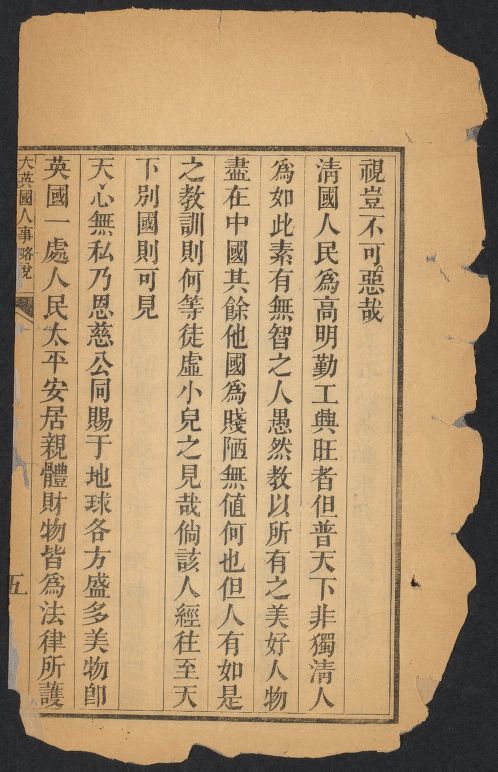 視豈不可惡哉
清國人民為高明勤工興旺者但普天下非獨清人
為如此素有無智之人愚然教以所有之美好人物
盡在中國其餘他國為賤陋無值何也但人有如是
之教訓則何等徒虛小兒之見哉倘該人經往至天
下別國則可見
天心無私乃恩慈公同賜于地球各方盛多美物卽
英國一處人民太平安居親體財物皆為法律所護
大英國人事略說
五